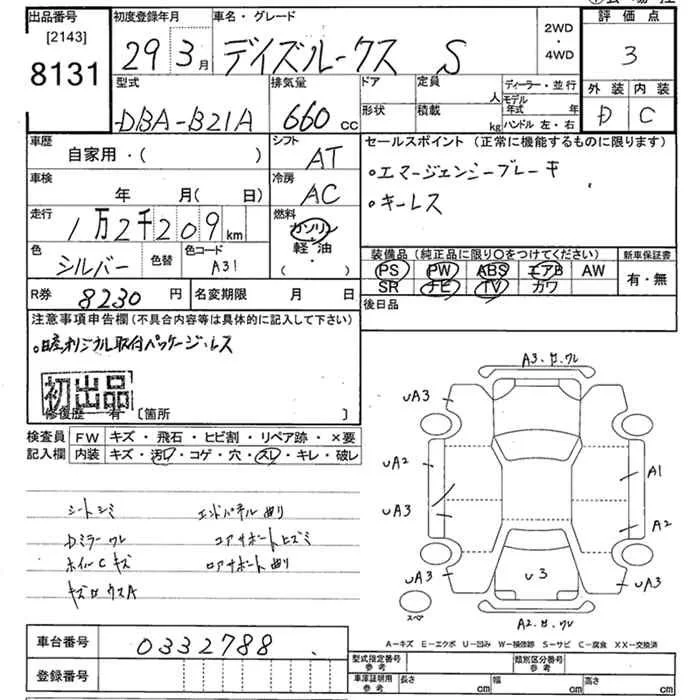 出品番号 初度登録年月 車名・グレード 2WD・4WD 評価点
[2143]
8131 29 3月 デイズルークス S 3
型式 排気量 ドア 定員 人 ディーラー・並行 外装 内装
DBA-B21A 660cc 形状 積載 kg モデル年式 年 ハンドル 左・右 D C
車歴 自家用・( ) シフト AT セールスポイント(正常に機能するものに限ります)
車検 年 月(日) 冷房 AC ・エマージェンシーブレーキ
・キーレス
走行 1万2千209km 燃料 ガソリン・軽油・( )
色 シルバー 色替 色コード A31 装備品(純正品に限り○をつけてください) 新車保証書
PS PW ABS エアB AW 有・無
SR ナビ TV カワ
R券 8230円 名変期限 月 日 後日品
注意事項申告欄(不具合内容等は具体的に記入して下さい)
・日産オリジナル取付パッケージレス
初出品
修復歴 有 [箇所 ]
検査員記入欄 FW キズ・飛石・ヒビ割・リペア跡・×要
内装 キズ・汚レ・コゲ・穴・スレ・キレ・破レ
シートシミ エンドパネル曲り
Dミラーワレ コアサポートヒズミ
ホイルCキズ ロアサポート曲り
A3.
UA3
UA2 A1
UA3 A2
UA3 U3 UA3
スペア
A2.
A-キズ E-エクボ U-凹み W-補修跡 S-サビ C-腐食 XX-交換済
車台番号 0332788
登録番号
型式指定番号 参考 類別区分番号 参考
車庫証明用 参考 長さ cm 幅 cm 高さ cm